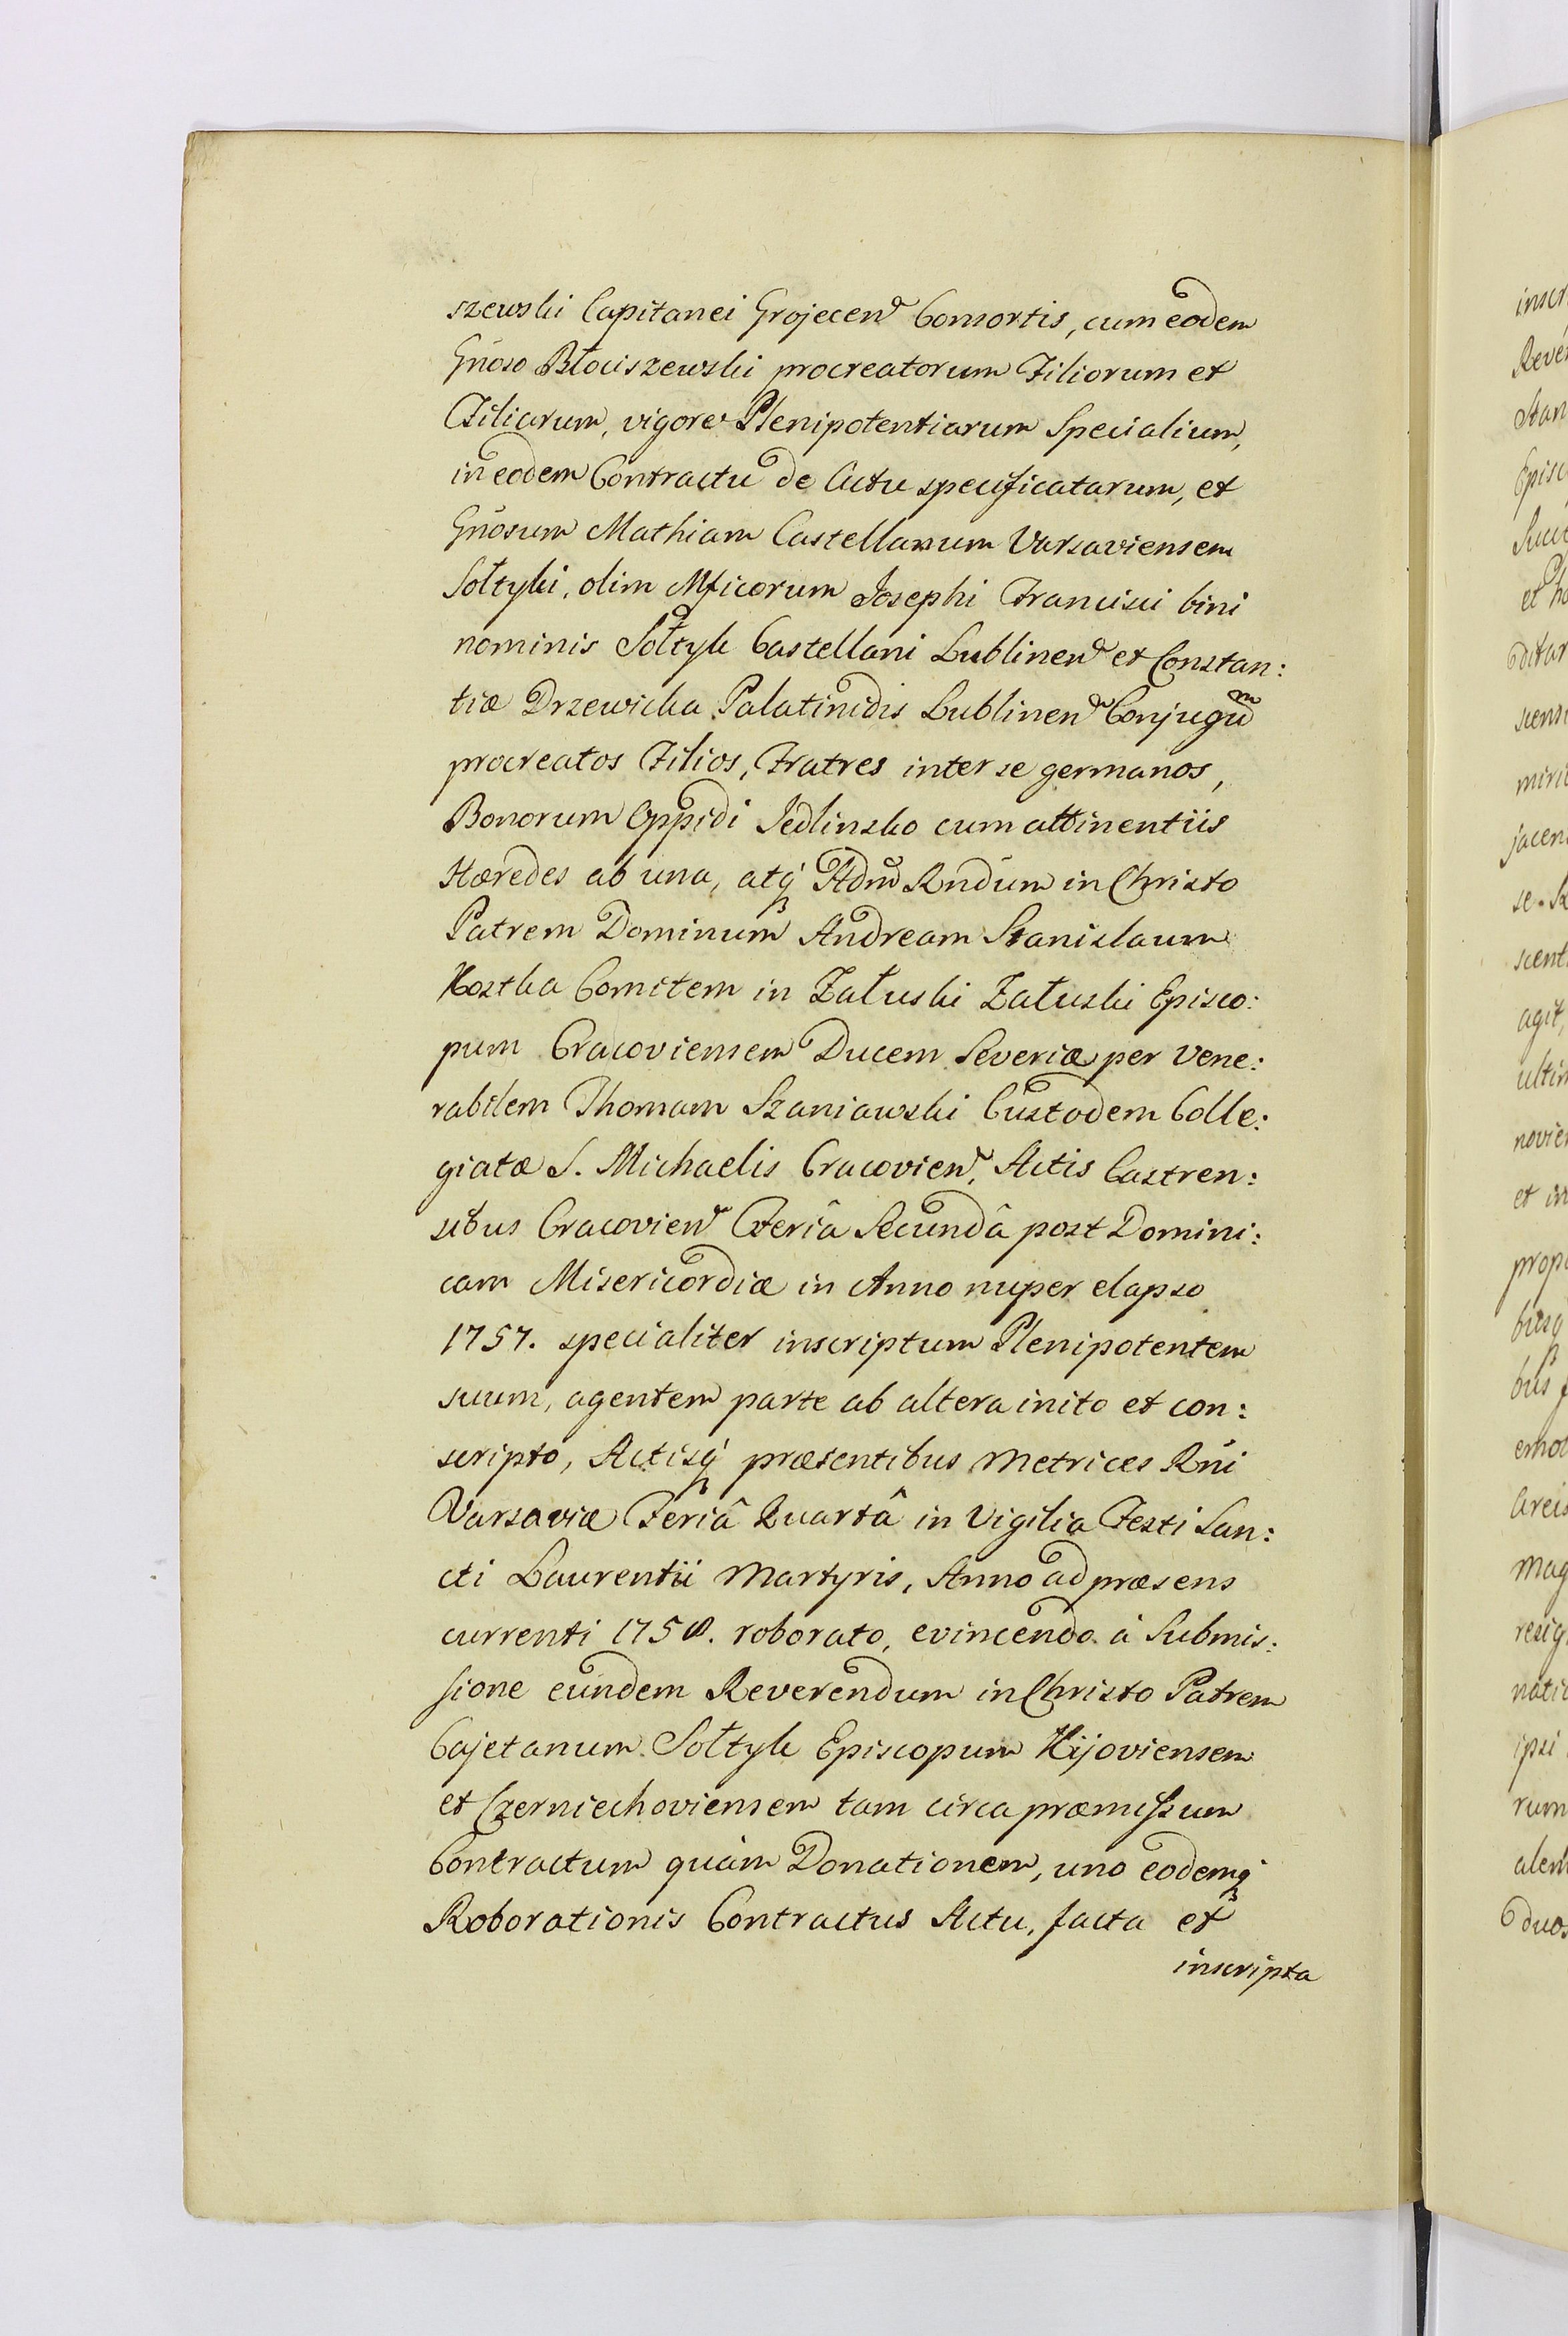 szewski Capitanei Grojecen Consortis, cum eodem
Gnoso Błociszewski procreatorum Filiorum et
Filiarum, vigore Plenipotentiarum Specialium,
in eodem Contractu de Actu specificatarum, et
Gnosum Mathiam Castellanum Varsaviensem
Sołtyki, olim Mficorum Josephi Francisci bini
nominis Sołtyk Castellani Lublinen et Constan:
tiæ Drzewicka Palatinidis Lublinen Conjugum
procreatos Filios, Fratres inter se germanos,
Bonorum Oppidi Jedlinsko cum attinentiis
Hæredes ab una, atq₃ Adm Rndum in Christo
Patrem Dominum Andream Stanislaum
Kostka Comitem in Załuski Załuski Episco:
pum Cracoviensem Ducem Severiæ per Vene:
rabilem Thomam Szaniawski Custodem Colle:
giatæ S. Michaelis Cracovien, Actis Castren:
sibus Cracovien Feriâ Secundâ post Domini:
cam Misericordiæ in Anno nuper elapso
1757. specialiter inscriptum Plenipotentem
suum, agentem parte ab altera inito et con:
scripto, Actisq₃ præsentibus Metrices Rni
Varsaviæ Feriâ Quartâ in Vigilia Festi San:
cti Laurentii Martyris, Anno ad præsens
currenti 1758. roborato, evincendo à Submis:
sione eundem Reverendum in Christo Patrem
Cajetanum Sołtyk Episcopum Kijoviensem
et Czerniechoviensem tam circa præmissum
Contractum quàm Donationem, uno eodemq₃
Roborationis Contractus Actu, facta et
inscripta